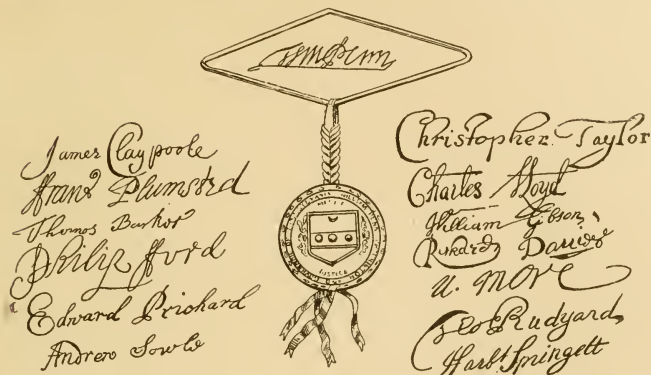 Wm Penn
James Claypoole
Franꝰ Plumsted
Thomas Barker
Philip fford
Edward Prichard
Andrew Sowle
Christopher Taylor
Charles Lloyd
William Gibson
Richard Davies
N. More
Tho Rudyard
Harbt Springett
MERCY
JUSTICE